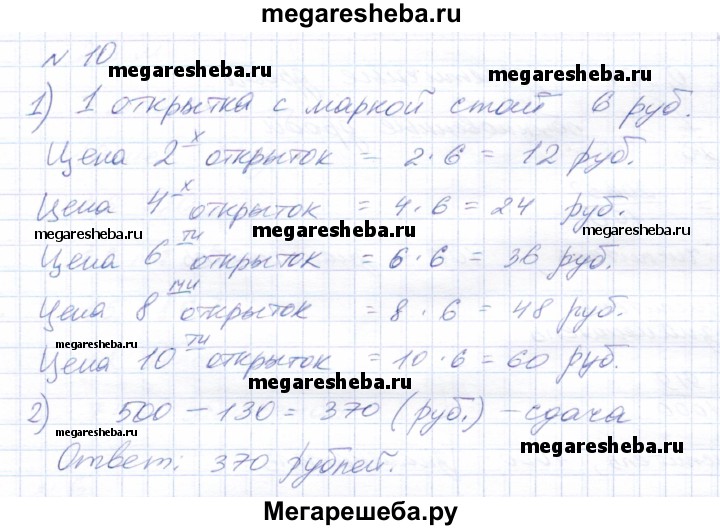 megaresheba.ru
№ 10
megaresheba.ru megaresheba.ru
1) 1 открытка с маркой стоит 6 руб.
Цена 2-х открыток = 2·6 = 12 руб.
Цена 4-х открыток = 4·6 = 24 руб.
megaresheba.ru megaresheba.ru megaresheba.ru
Цена 6-ти открыток = 6·6 = 36 руб.
Цена 8-ми открыток = 8·6 = 48 руб.
megaresheba.ru megaresheba.ru
Цена 10-ти открыток = 10·6 = 60 руб.
megaresheba.ru
2) 500 - 130 = 370 (руб.) - сдача
megaresheba.ru megaresheba.ru
Ответ: 370 рублей.
Мегарешеба.ру